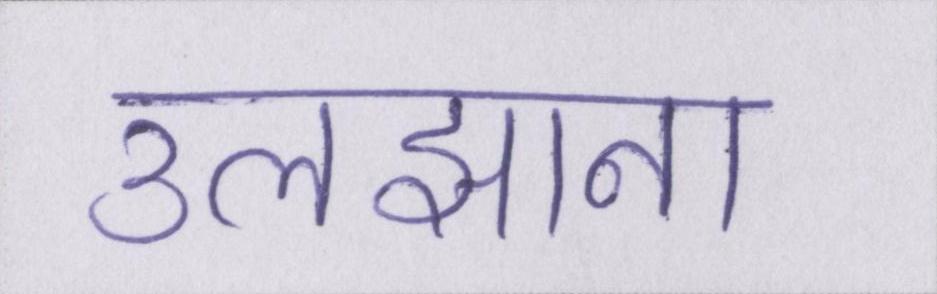 उलझाना